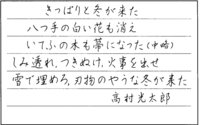 きっぱりと冬が来た
八つ手の白い花も消え
いてふの木も箒になった(中略)
しみ透れ、つきぬけ、火事を出せ
雪で埋めろ、刃物のやうな冬が来た
高村光太郎